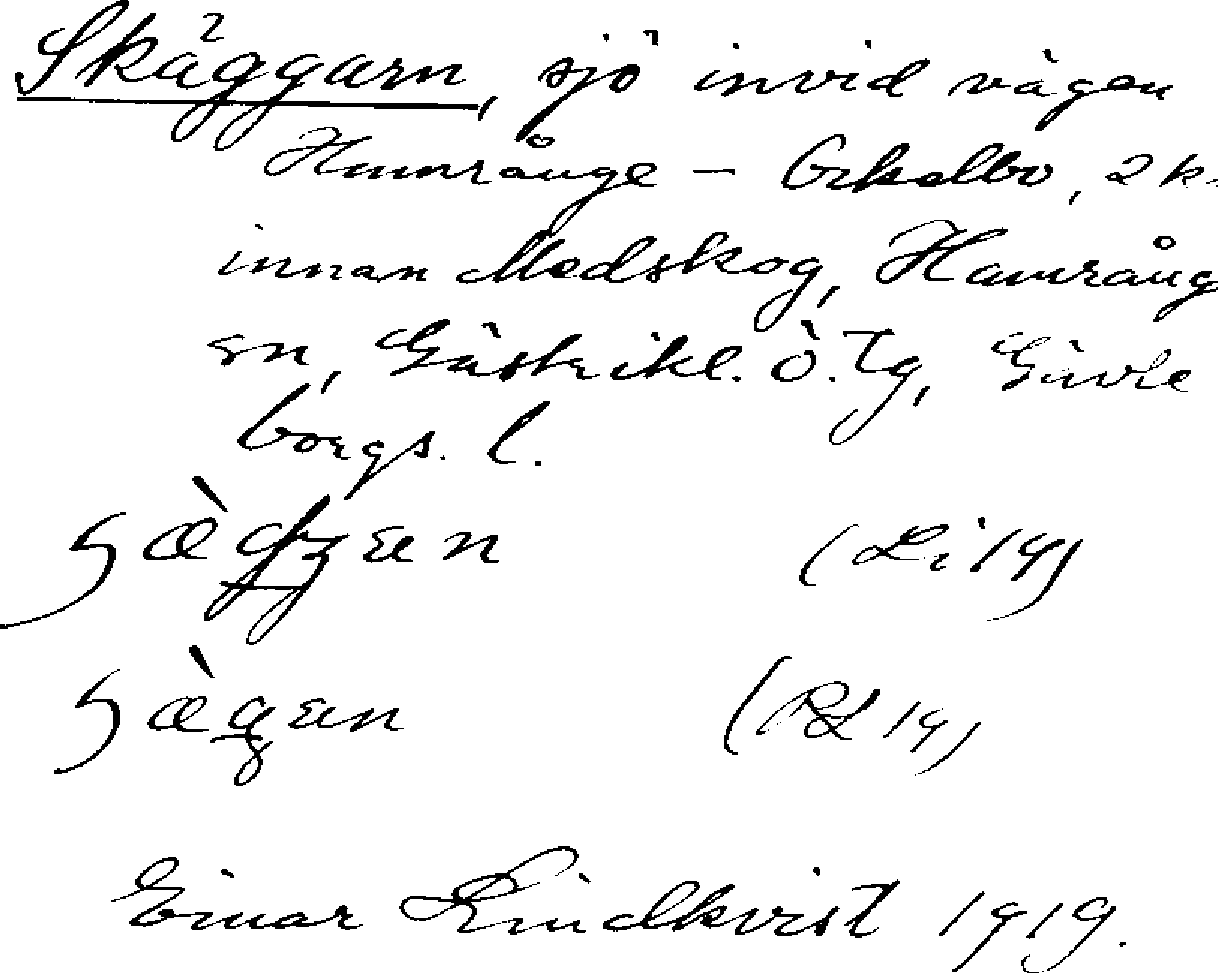 Skäggarn, sjö invid vägen
Hamrånge - Ockelbo, 2 k
innan Medskog, Hamrång
sn, Gästrikl. Ö. Tg, Gävle
borgs. l.
(Li 19)
(RL 19)
Einar Lindkvist 1919.